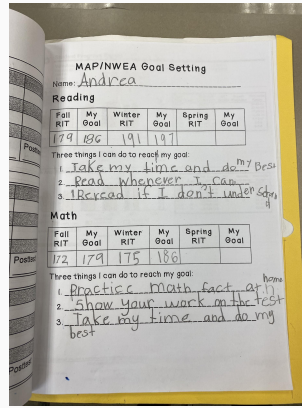 MAP/NWEA Goal Setting
Name: Andrea
Reading
Fall RIT My Goal Winter RIT My Goal Spring RIT My Goal
179 186 191 197
Three things I can do to reach my goal:
1. Take my time and do my Best
2. Read whenever I can
3. Reread if I don't under stand
Math
Fall RIT My Goal Winter RIT My Goal Spring RIT My Goal
172 179 175 186
Three things I can do to reach my goal:
1. Practice math fact at home
2. Show your work on the test
3. Take my time and do my
best
Posttest